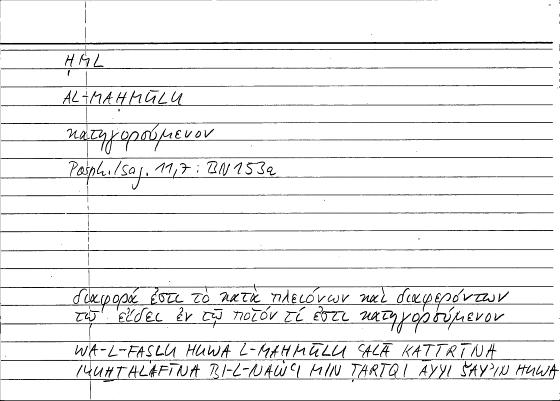 ḤML
AL-MAḤMŪLU
κατηγορούμενον
Porph. Isag. 11,7 : BN 153a
διαφορά ἐστι τὸ κατὰ πλειόνων καὶ διαφερόντων
τῷ εἴδει ἐν τῷ ποῖόν τί ἐστι κατηγορούμενον
WA-L-FAṢLU HUWA L-MAḤMŪLU ʿALĀ KAṮĪRĪNA
MUḪTALIFĪNA BI-L-NAWʿI MIN ṬARĪQI AYYI ŠAYʾIN HUWA